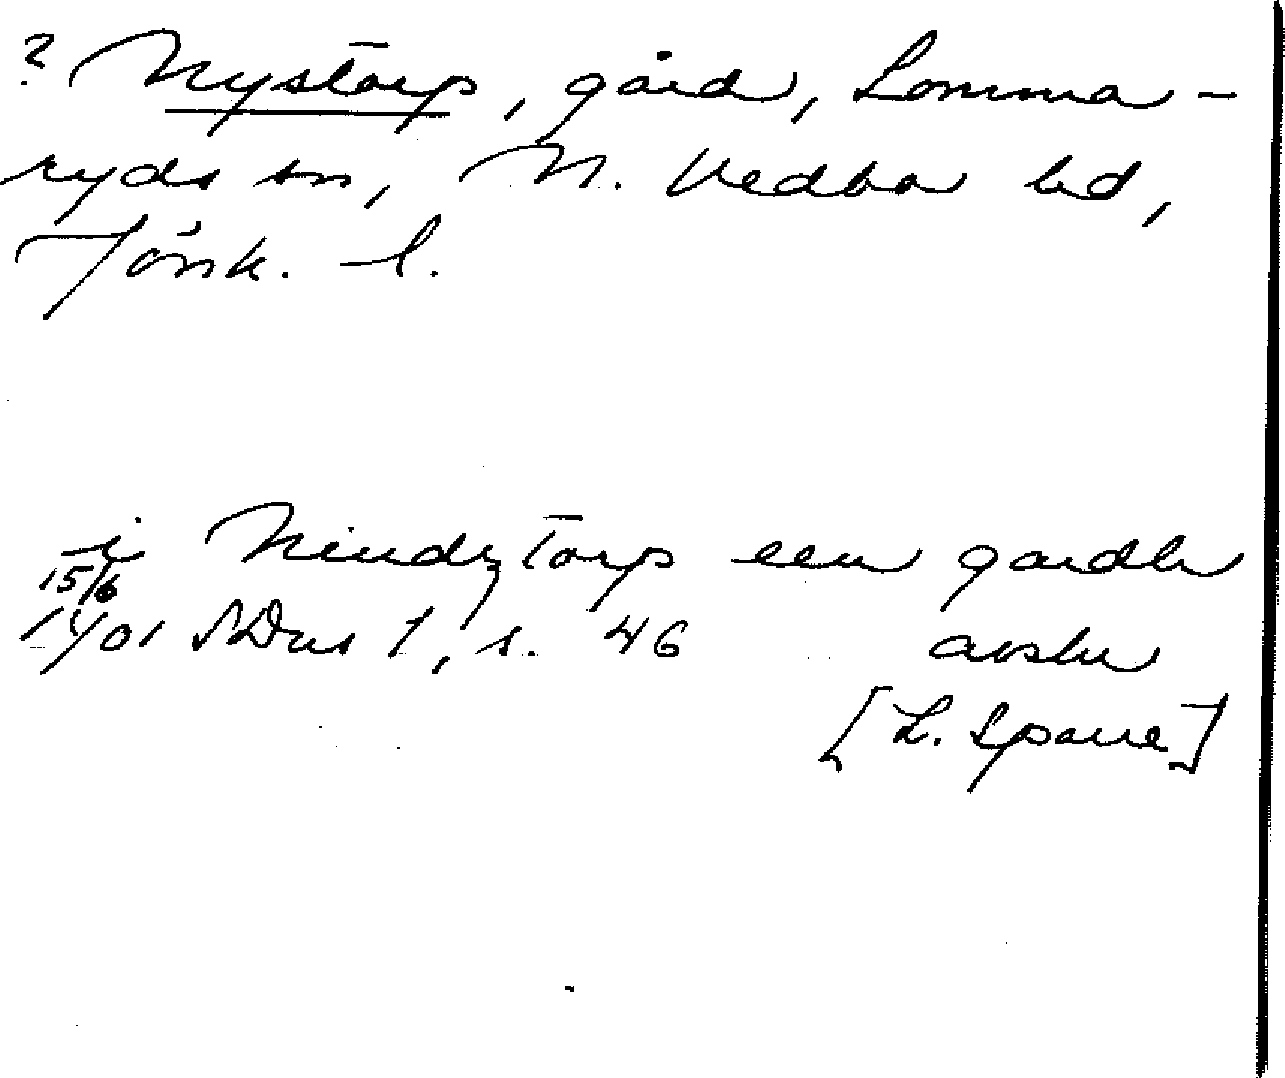 ? Nystorp, gård, Lomma-
ryds sn, N. Vedbo hd,
Jönk. l.
i Niudztorp een gardh
15/6
1401 SDns 1, s. 46 avskr
[L. Sparre]